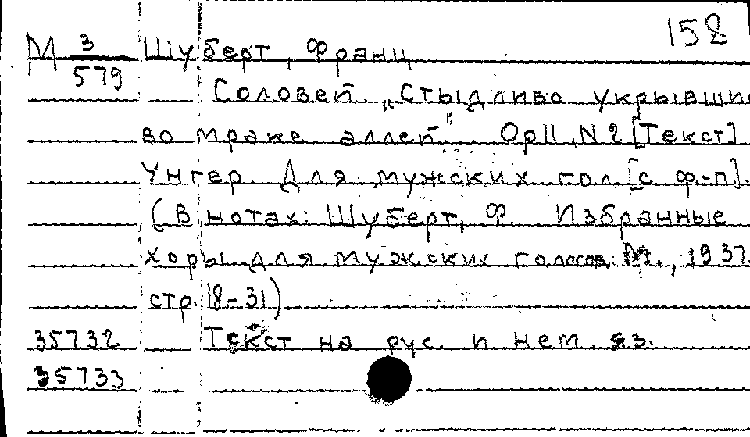 152
М 3/579 Шуберт, Франц
Соловей „Стыдливо укрывши
во мраке аллей" Op 11, N 2 [Текст]
Унгер. Для мужских гол. [с ф-п].
(В нотах: Шуберт, Ф. Избранные
хоры для мужских голосов. М., 1937.
стр. 18-31)
35732 Текст на рус. и нем. яз.
35733